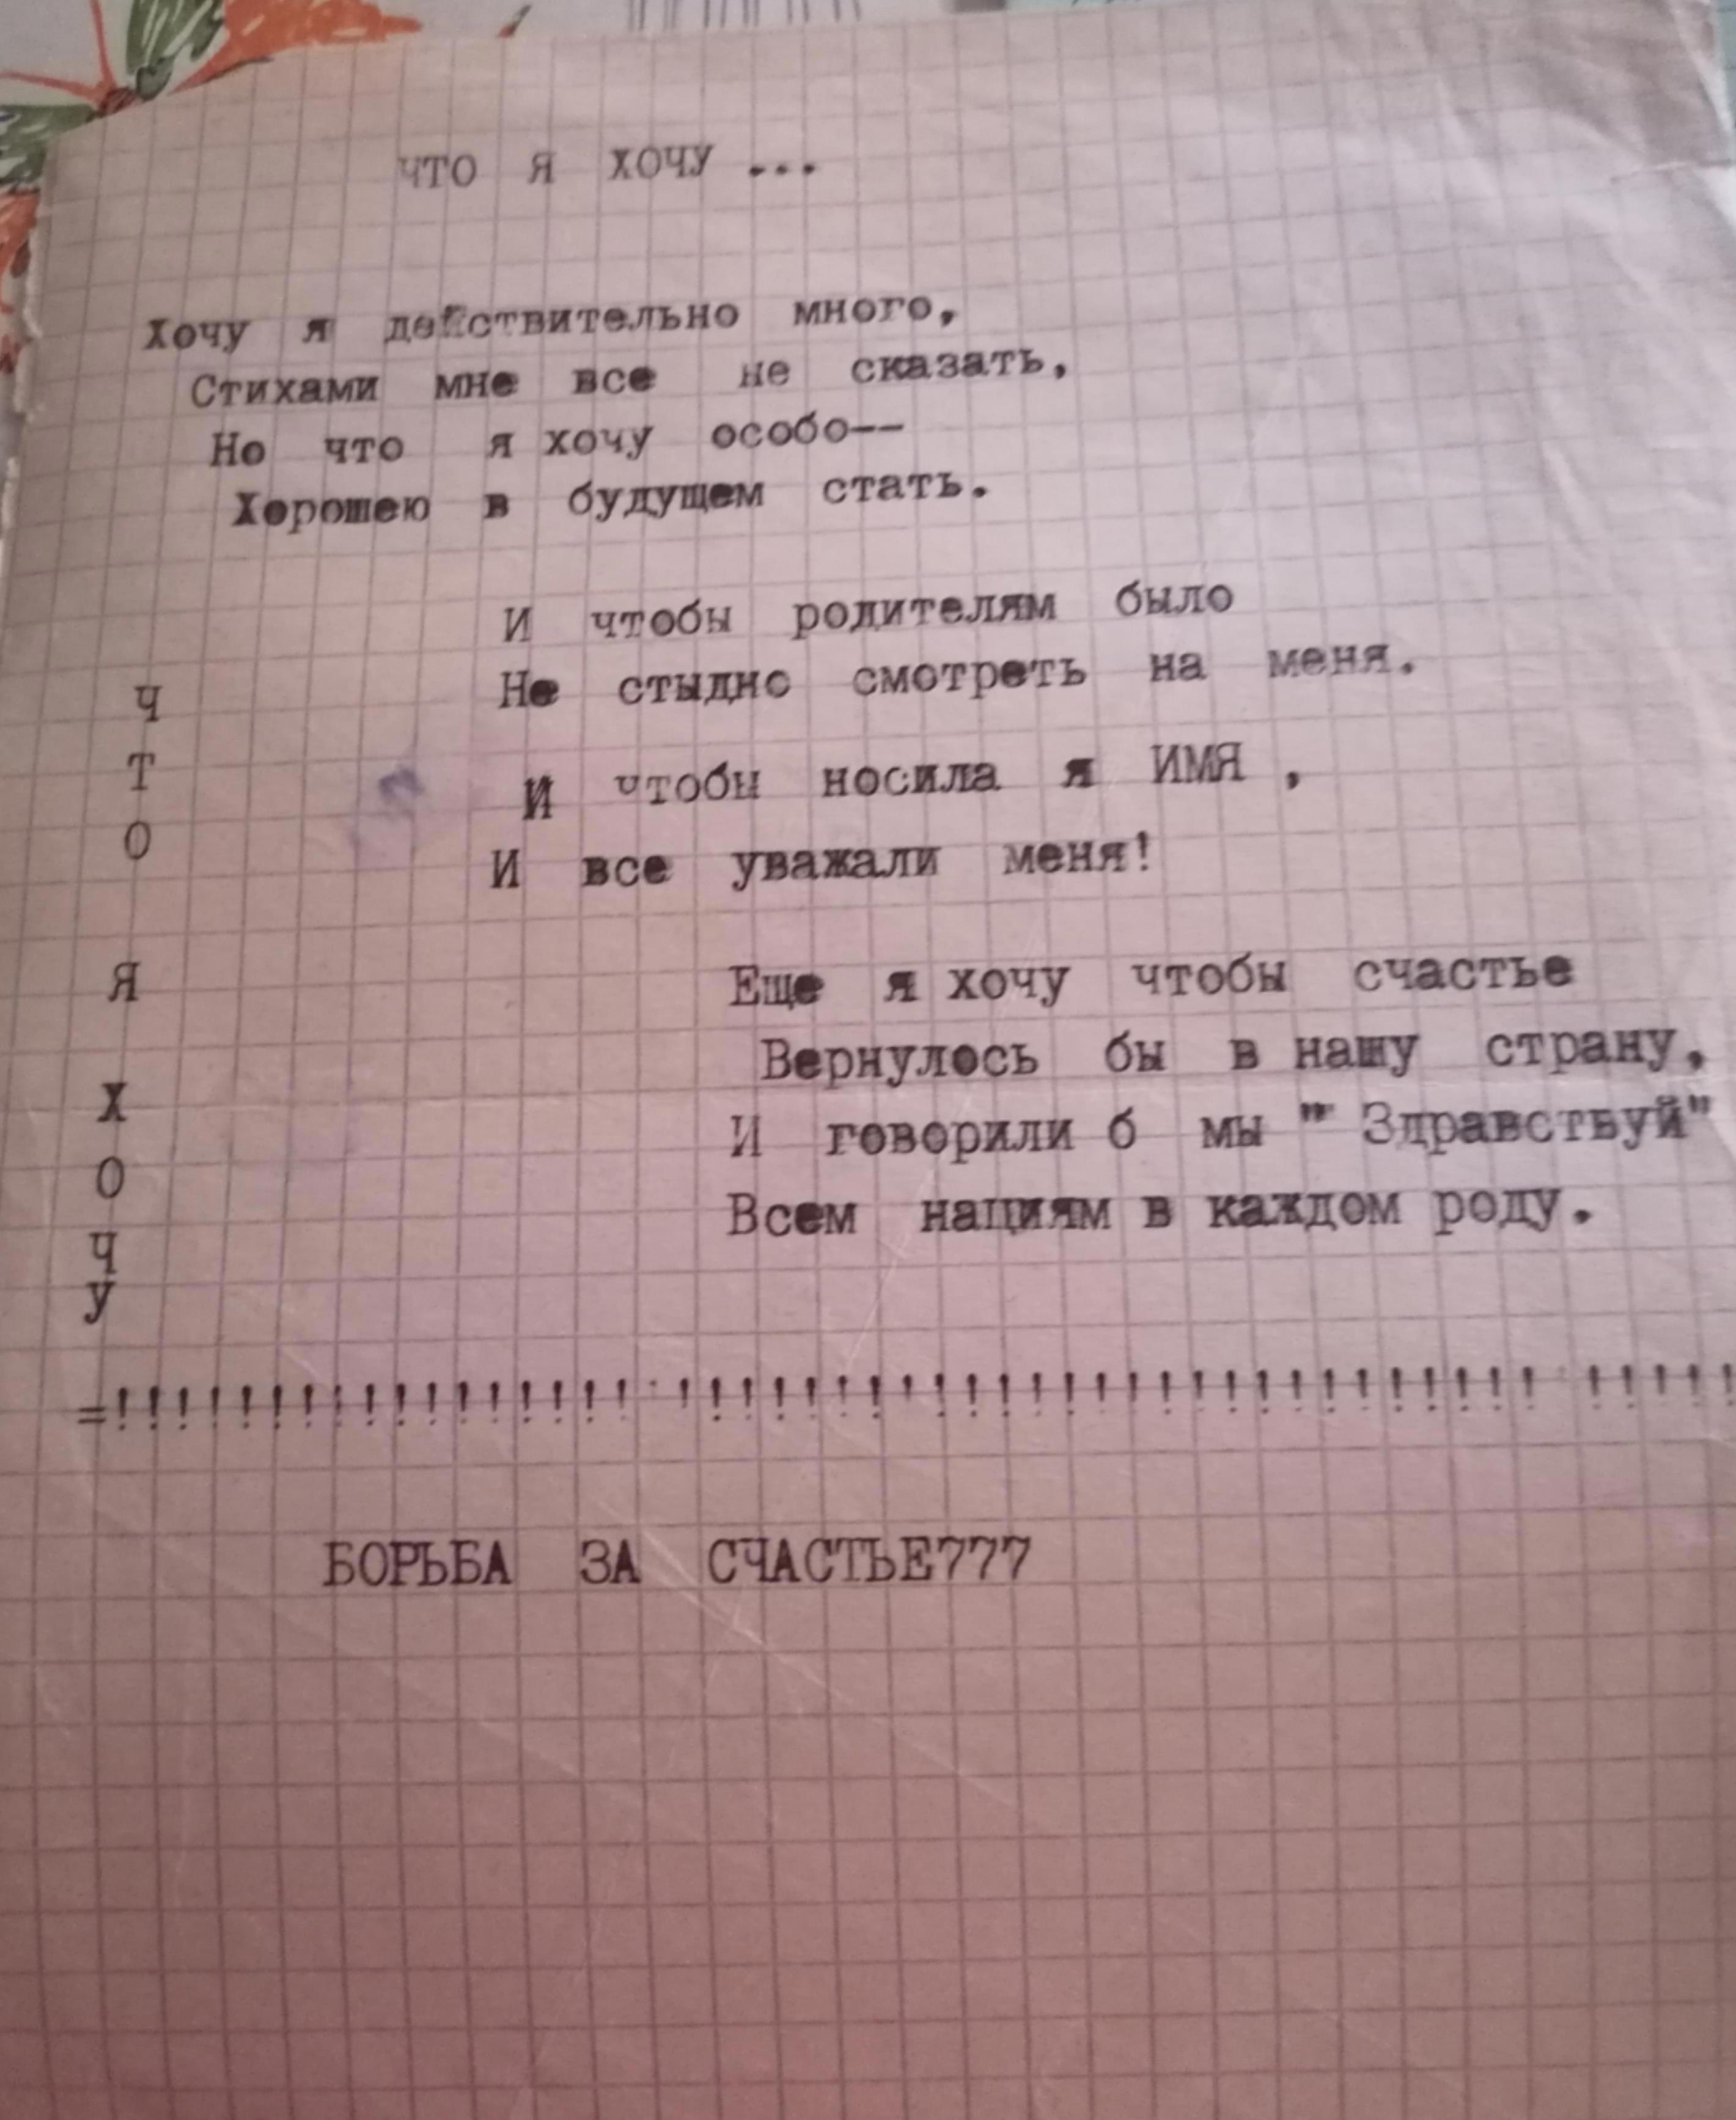 ЧТО Я ХОЧУ ...
Хочу я действительно много,
Стихами мне все не сказать,
Но что я хочу особо--
Хорошею в будущем стать.
И чтобы родителям было
Не стыдно смотреть на меня.
И чтобы носила я ИМЯ ,
И все уважали меня!
Ч
Т
О
Я
Х
О
Ч
У
Еще я хочу чтобы счастье
Вернулось бы в нашу страну,
И говорили б мы " Здравствуй"
Всем нациям в каждом роду.
=!!!!!!!!!!!!!!!!! !!!!!!!!!!!!!!!!!!!!!!!!!!!! !!!!!
БОРЬБА ЗА СЧАСТЬЕ777